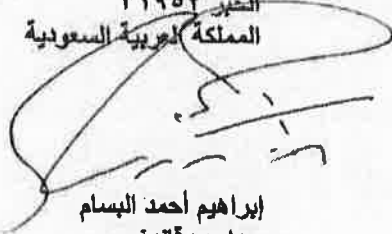 الخبر ٣١٩٥٢
المملكة العربية السعودية
إبراهيم أحمد البسام